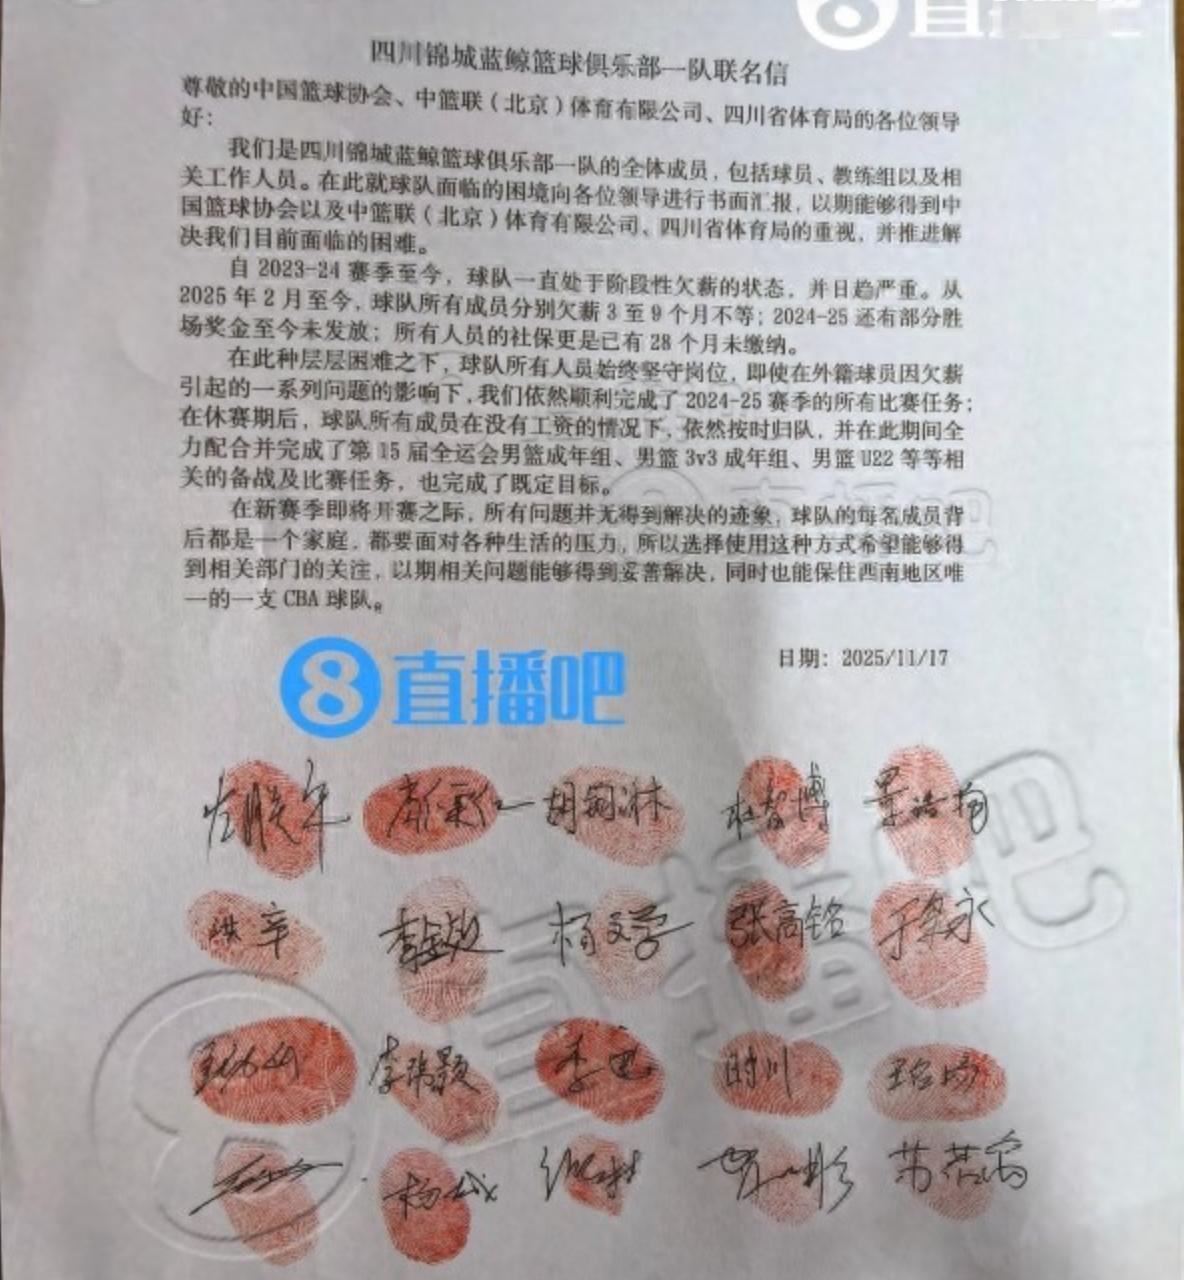 直播吧
四川锦城蓝鲸篮球俱乐部一队联名信
尊敬的中国篮球协会、中篮联（北京）体育有限公司、四川省体育局的各位领导
好：
我们是四川锦城蓝鲸篮球俱乐部一队的全体成员，包括球员、教练组以及相
关工作人员。在此就球队面临的困境向各位领导进行书面汇报，以期能够得到中
国篮球协会以及中篮联（北京）体育有限公司、四川省体育局的重视，并推进解
决我们目前面临的困难。
自 2023-24 赛季至今，球队一直处于阶段性欠薪的状态，并日趋严重。从
2025 年 2 月至今，球队所有成员分别欠薪 3 至 9 个月不等；2024-25 还有部分胜
场奖金至今未发放；所有人员的社保更是已有 28 个月未缴纳。
在此种层层困难之下，球队所有人员始终坚守岗位，即使在外籍球员因欠薪
引起的一系列问题的影响下，我们依然顺利完成了 2024-25 赛季的所有比赛任务；
在休赛期后，球队所有成员在没有工资的情况下，依然按时归队，并在此期间全
力配合并完成了第 15 届全运会男篮成年组、男篮 3v3 成年组、男篮 U22 等等相
关的备战及比赛任务，也完成了既定目标。
在新赛季即将开赛之际，所有问题并无得到解决的迹象，球队的每名成员背
后都是一个家庭，都要面对各种生活的压力，所以选择使用这种方式希望能够得
到相关部门的关注，以期相关问题能够得到妥善解决，同时也能保住西南地区唯
一的一支 CBA 球队。
日期：2025/11/17
直播吧
杜智博 景浩楠
洪宇 杨文学 张高铭
李瑞颖 季也 时川
杨城 苏若禹
直播吧